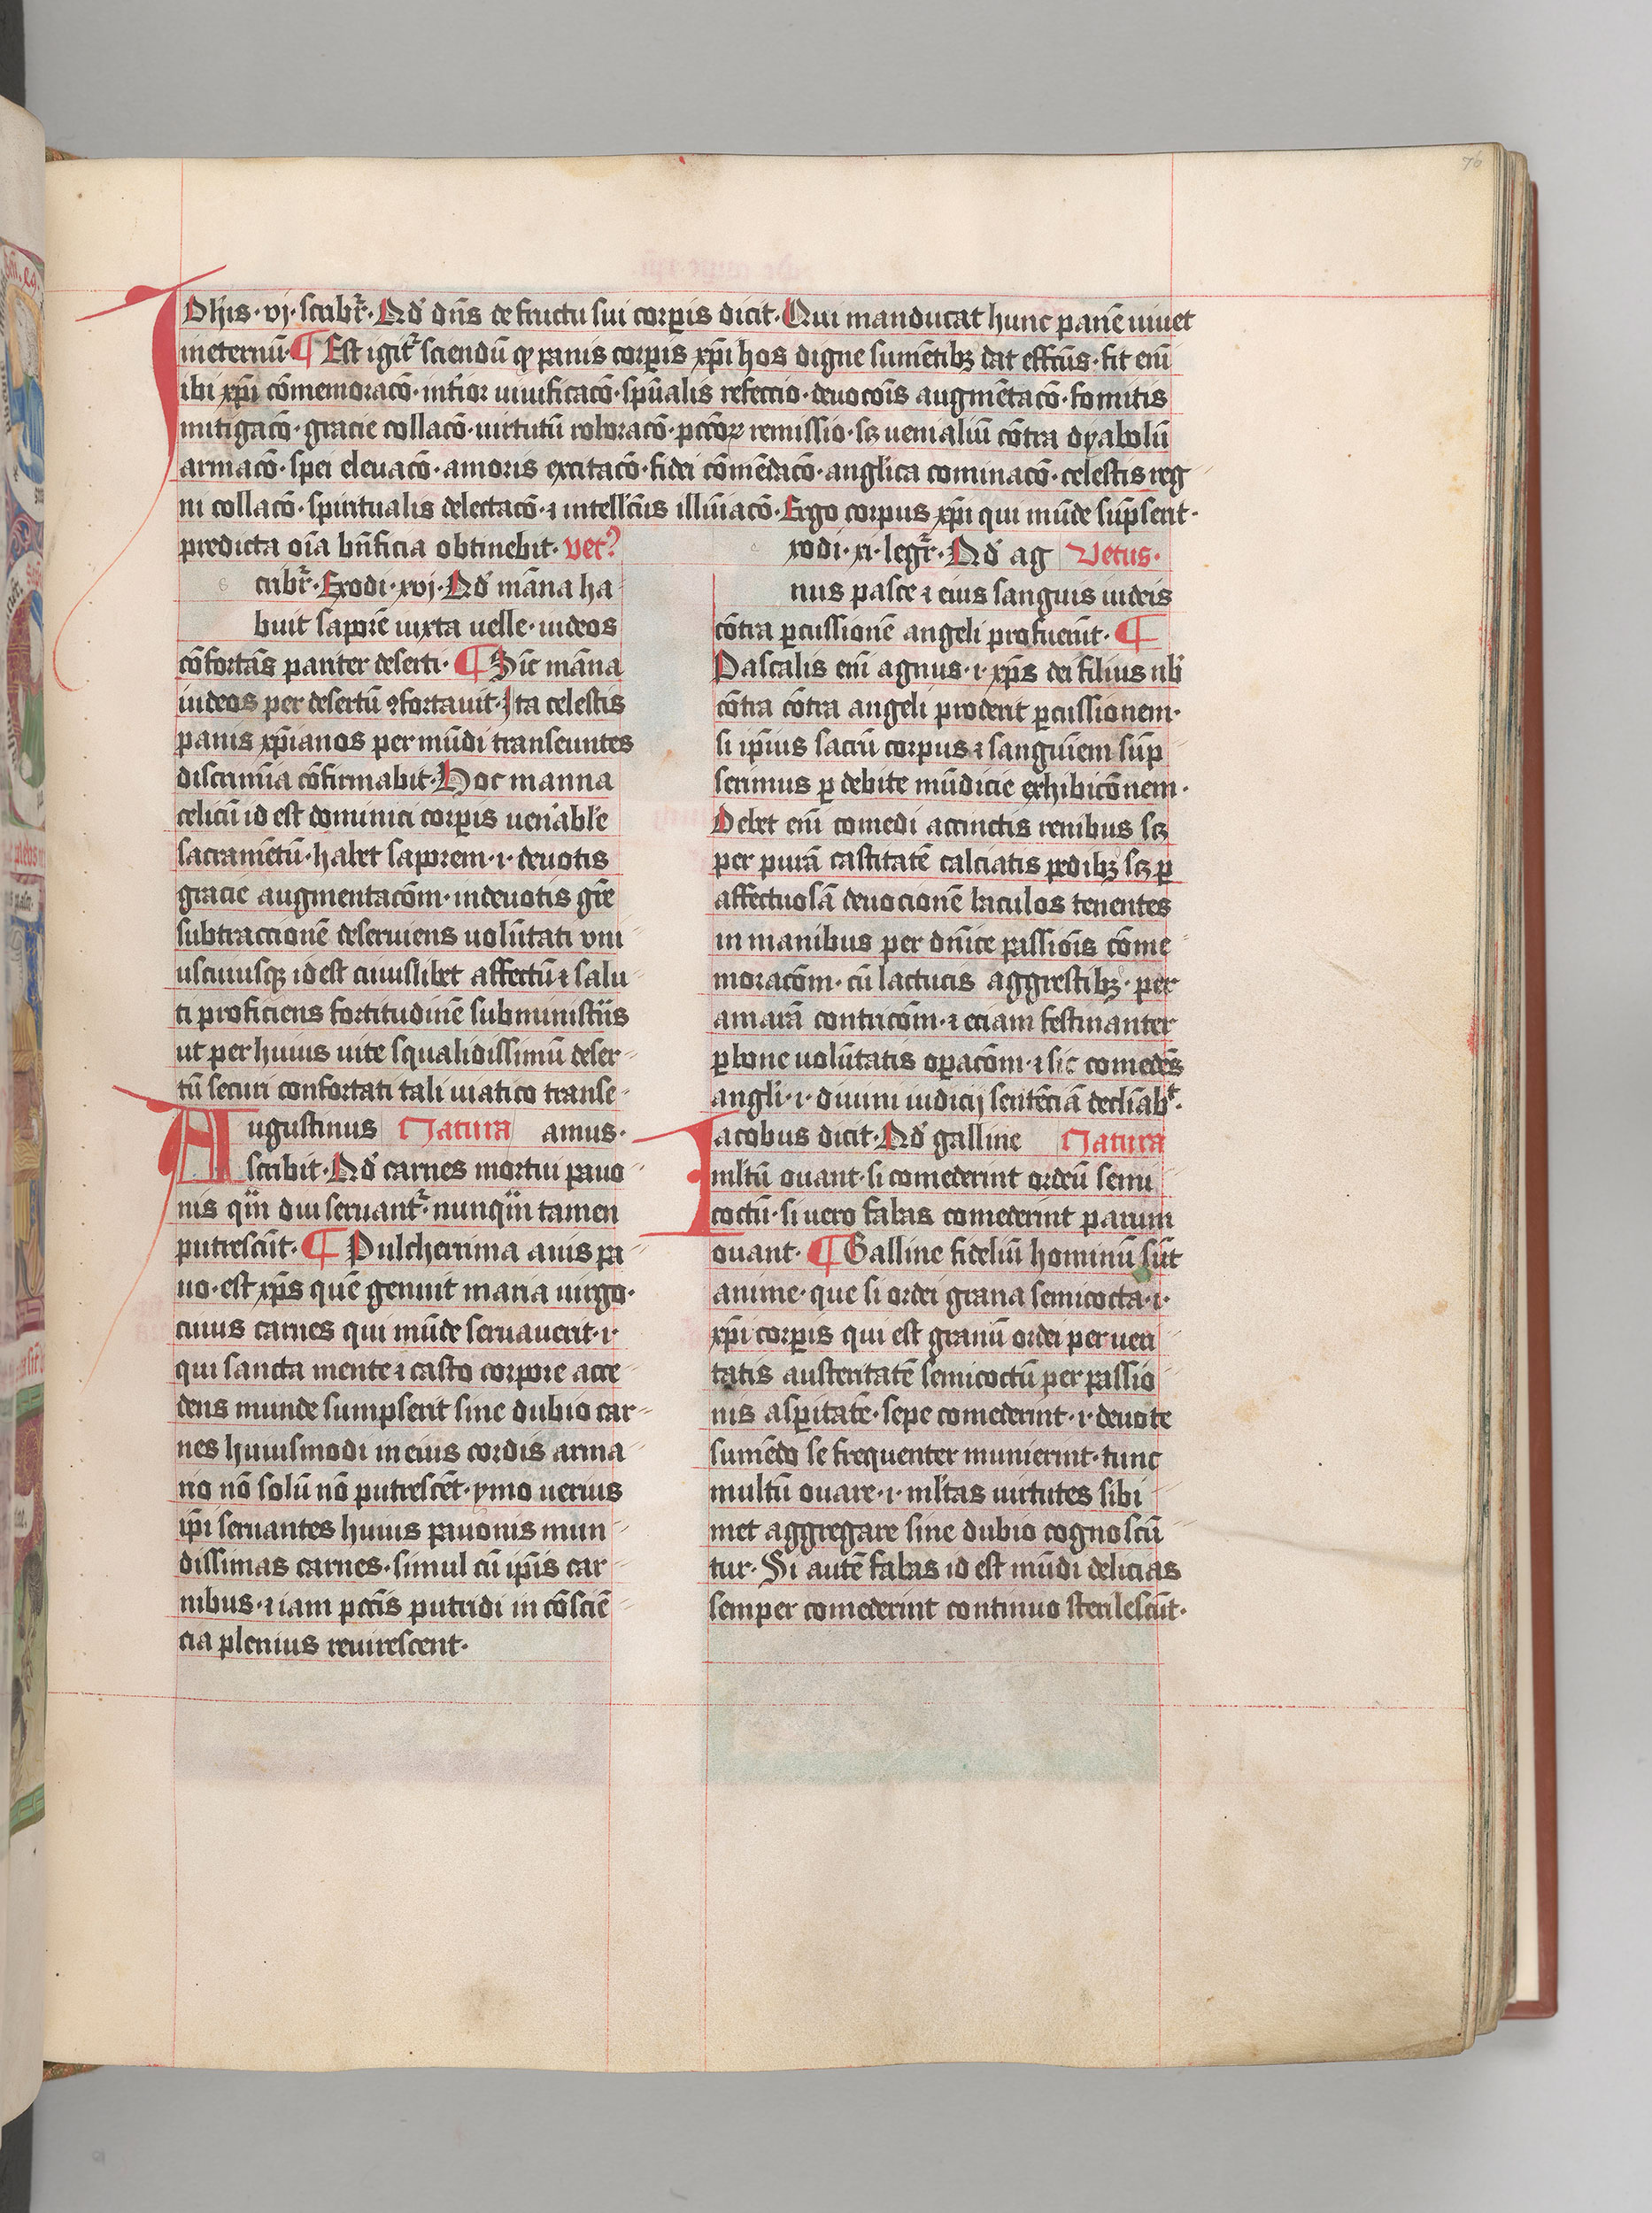 76
IOhis · vj · scribr̃ · Qd̾ dn̄s de fructu sui corꝑis dicit · Qui manducat hunc panē uiuet
in eternū · ¶ Est igit̾ sciendū ꝙ panis corꝑis xp̄i hos digne sumētibꝫ dat effcūs · fit eni̅
ibi xp̄i cōmemoracō · inf̾ior uiuificacō · spūalis refeccio · deuocōis augmētacō · fomitis
mitigacō · gracie collacō · uirtutū roboracō · pccōꝝ remissio · sꝫ uenialiū cōtra dyabolū
armacō · spei eleuacō · amoris excitacō · fidei cōmēdacō · anglica cominacō · celestis reg
ni collacō · spiritualis delectacō · ⁊ intellc̄us illūiacō · Ergo corpus xp̄i qui mūde sūpserit ·
predicta oīa bn̄ficia obtinebit · vet̾
s cribr̃ · Exodi · xvj · Qd̾ māna ha
buit saporē iuxta uelle · iudeos
cōfortās panter deserti · ¶ Sic māna
iudeos per desertū ꝯfortauit · Ita celestis
panis xp̄ianos per mūdi transeuntes
discrimīa cōfirmabit · Hoc manna
celicū id est dominici corꝑis uen̾able
sacramētū · habet saporem · i · deuotis
gracie augmentacōm · indeuotis grē
subtraccionē deseruiens uolūtati vni
uscuiusqꝫ id est cuiuslibet affectū ⁊ salu
ti proficiens fortitudinē subministīs
ut per huius uite squalidissimū deser
tū securi confortati tali uiatico transe
Augustinus Natura amus ·
scribit · Qd̾ carnes mortui pauo
nis qn̄ diu seruant̾ · nunqn̄ tamen
putrescūt · ¶ Pulcherrima auis pa
uo · est xp̄s quē genuit maria uirgo ·
cuius carnes qui mūde seruauerit · i ·
qui sancta mente ⁊ casto corpore acce
dens munde sumpserit sine dubio car
nes huiusmodi in eius cordis arma
rio nō solū nō putrescēt · ymo uerius
ip̄i seruantes huius pauonis mun
dissimas carnes · simul cū ip̄is car
nibus · ⁊ iam pcc̄is putridi in cōsciē
cia plenius reuirescent ·
e xodi · xi · legr̃ · Qd̾ ag Vetus ·
nus pasce ⁊ eius sanguis iudeis
cōtra ꝑcussionē angeli profuerūt · ¶
Pascalis eni̅ agnus · i · xp̄s dei filius nb̾
cōtra cōtra angeli proderit ꝑcussionem ·
si ip̄ius sacrū corpus ⁊ sanguīem sūp
serimus ꝑ debite mūdicie exhibicōnem ·
Debet eni̅ comedi accinctis renibus sꝫ
per purā castitatē calciatis pedibꝫ sꝫ ꝑ
affectuosā deuocionē baculos tenentes
in manibus per dnīce passiōis cōme
moracōm · cū lactucis aggrestibꝫ · per
amarā contricōm · ⁊ eciam festinanter
ꝑ bone uolūtatis oꝑacōm · ⁊ sic comedēs
angli · i · diuini iudicij sentēciā decliāb̾ ·
Iacobus dicit · Qd̾ galline Natura
ml̄tū ouant · si comederint ordeū semi
coctū · si uero fabas comederint parum
ouant · ¶ Galline fideliū hominū sūt
anime · que si ordei grana semicocta · i ·
xp̄i corꝑis qui est granū ordei per ueri
tatis austeritatē semicoctū per passio
nis asꝑitatē · sepe comederint · i · deuote
sumēdo se frequenter munierint · tunc
multū ouare · i · ml̄tas uirtutes sibi
met aggregare sine dubio cognoscū
tur · Si autē fabas id est mūdi delicias
semper comederint continuo sterilescūt ·